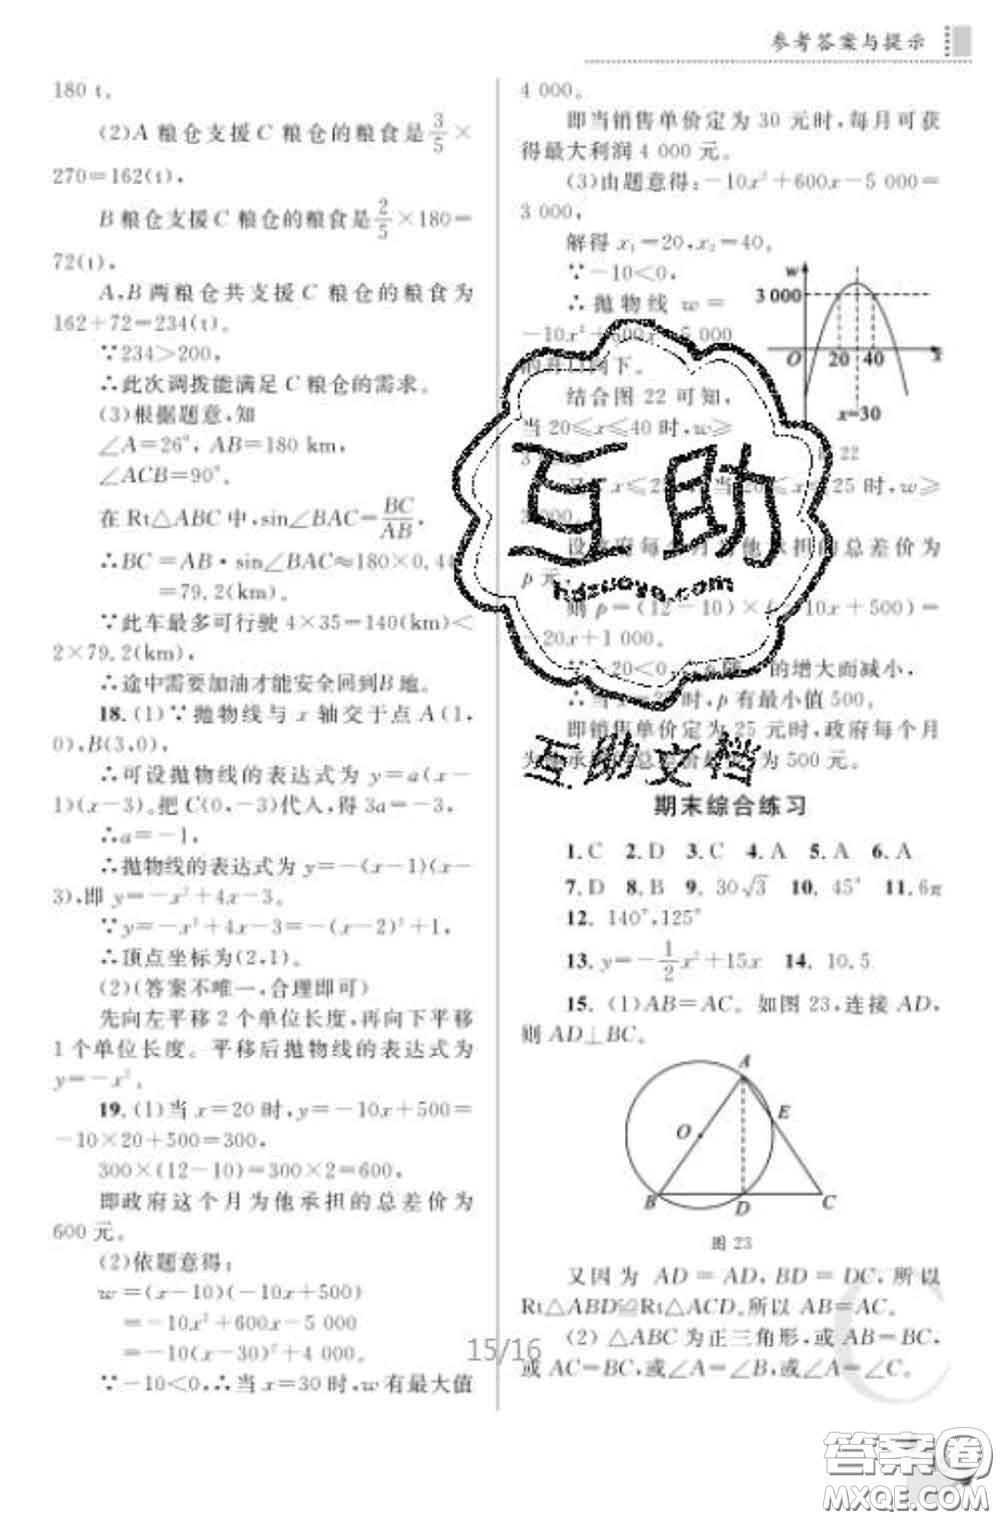 参考答案与提示
180 t。
(2)A 粮仓支援 C 粮仓的粮食是 3/5 ×
270=162(t)，
B 粮仓支援 C 粮仓的粮食是 2/5 ×180=
72(t)，
A,B 两粮仓共支援 C 粮仓的粮食为
162+72=234(t)。
∵234>200，
∴此次调拨能满足 C 粮仓的需求。
(3)根据题意，知
∠A=26°，AB=180 km，
∠ACB=90°。
在 Rt△ABC 中，sin∠BAC=BC/AB，
∴BC=AB·sin∠BAC≈180×0.44
=79.2(km)。
∵此车最多可行驶 4×35=140(km)<
2×79.2(km)，
∴途中需要加油才能安全回到B 地。
18.(1)∵抛物线与 x 轴交于点 A(1,
0),B(3,0)，
∴可设抛物线的表达式为 y=a(x-
1)(x-3)。把 C(0,-3)代入,得 3a=-3，
∴a=-1，
∴抛物线的表达式为 y=-(x-1)(x-
3),即 y=-x²+4x-3。
∵y=-x²+4x-3=-(x-2)²+1，
∴顶点坐标为(2,1)。
(2)(答案不唯一,合理即可)
先向左平移 2 个单位长度,再向下平移
1 个单位长度。平移后抛物线的表达式为
y=-x²。
19.(1)当 x=20 时,y=-10x+500=
-10×20+500=300，
300×(12-10)=300×2=600，
即政府这个月为他承担的总差价为
600 元。
(2)依题意得：
w=(x-10)(-10x+500)
=-10x²+600x-5 000
=-10(x-30)²+4 000。
∵-10<0,∴当 x=30 时,w 有最大值
4 000。
即当销售单价定为 30 元时,每月可获
得最大利润 4 000 元。
(3)由题意得:-10x²+600x-5 000=
3 000，
解得 x₁=20,x₂=40。
∵-10<0，
∴抛物线 w=
-10x²+600x-5 000
的开口向下。
结合图 22 可知,
当 20≤x≤40 时,w≥
w
3 000
O
20
40
x
x=30
22
25 时,w≥
设政府每个月为他承担的总差价为
p 元，
则 p=(12-10)×(-10x+500)=
20x+1 000。
∵-20<0, 的增大而减小，
∴当 时,p 有最小值 500。
即销售单价定为 25 元时,政府每个月
为他承担的总差价 为 500 元。
互助
hdzuoye.com
互助文档
期末综合练习
1.C 2.D 3.C 4.A 5.A 6.A
7.D 8.B 9. 30√3 10. 45° 11.6π
12. 140°,125°
13. y=-1/2x²+15x 14. 10.5
15. (1)AB=AC。如图 23,连接 AD,
则 AD⊥BC。
A
E
O
B
D
C
图 23
又因为 AD=AD,BD=DC,所以
Rt△ABD≌Rt△ACD。所以 AB=AC。
(2) △ABC 为正三角形,或 AB=BC,
或 AC=BC,或∠A=∠B,或∠A=∠C。
15/16
答案圈
MXQE.COM